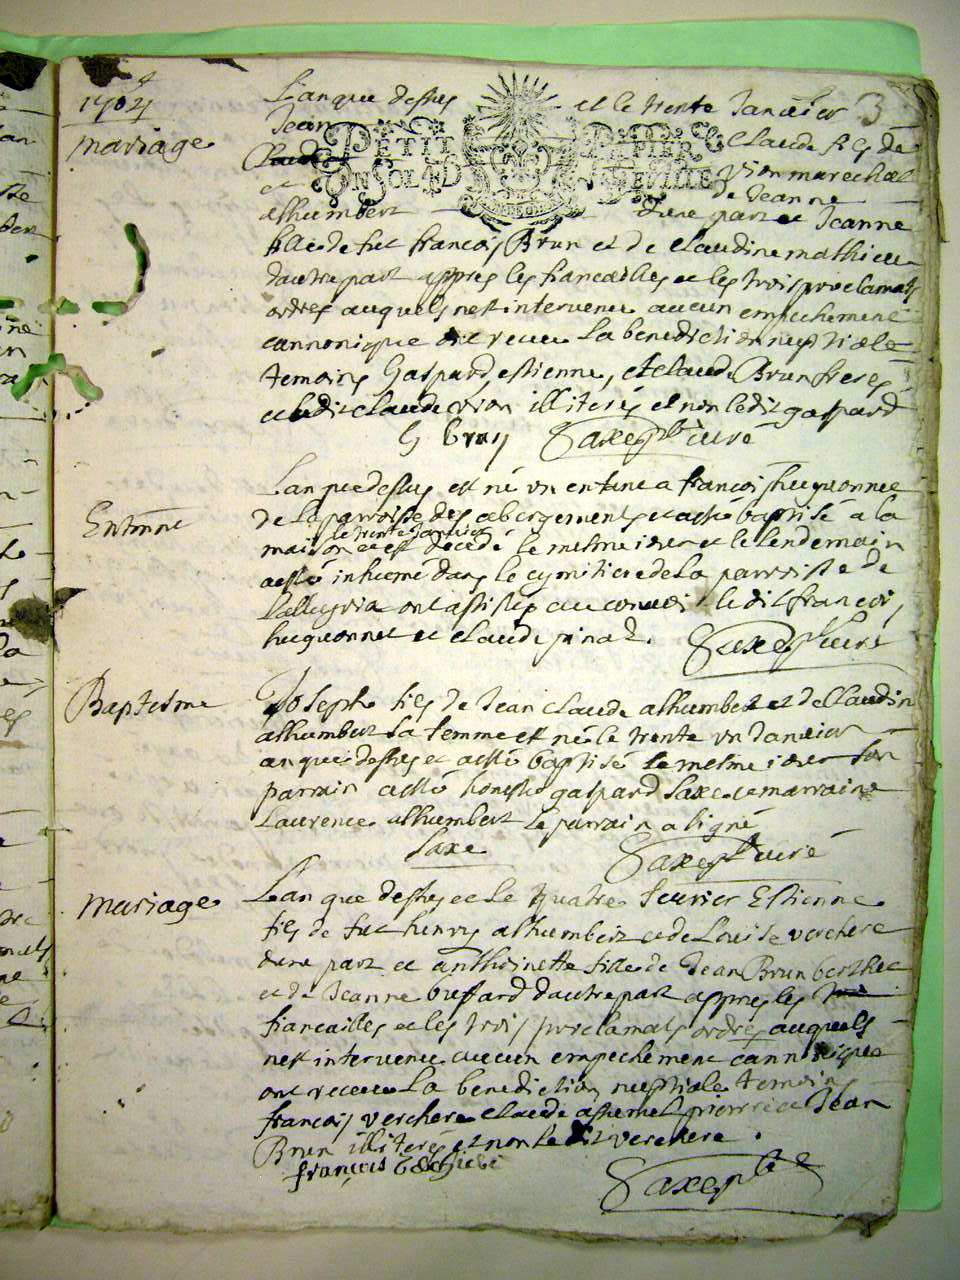 1704
3
mariage
L'an que dessus et le trente Janvier
Jean Claude fils de
PETIT PAPIER
UN SOL 4 D LA FEVILLE
vion marechal
et de Jeanne
alhumbert d'une part et Jeanne
fille de fut francois Brun et de claudine mathieu
dautre part appres les fiancailles et les trois proclamats
ordres auquels nest intervenu aucun empechement
cannonique ont receu La benediction nuptiale
temoins Gaspard, estienne, et claude Brun freres
et ledit claude vion illiterés et non le dit gaspard
G brun Saxe pbr curé
Enterrmt
L'an que dessus est né un enfant a francois huguonnet
de la parroisse des abergements et a esté baptisé a la
le trente Janvier
maison et est decedé le mesme iour et le lendemain
a esté inhumé dans le cymitiere de la parroisse de
Lalleyria ont assistés au convoi le dit francois
huguonnet et claude pinaz. Saxe pbr curé
Baptesme
Joseph fils de Jean claude alhumbert et de Claudine
alhumbert sa femme est né le trente un Janvier
an que dessus et a esté baptisé le mesme iour son
parrain a esté honeste gaspard Saxe et marraine
Laurence alhumbert le parrain a signé
Saxe Saxe pbr curé
mariage
L'an que dessus et le quatre fevrier Estienne
fils de fut henry alhumbert et de Louise verchere
dune part et anthoinette fille de Jean Brun berthet
et de Jeanne buffard dautre part appres les
fiancailles et les trois proclamats ordres auquels
nest intervenu aucun empechement cannonique
ont receu La benediction nuptiale temoins
francois verchere claude pierre et Jean
Brun illiterés et non le dit verchere.
françois
Saxe pbr